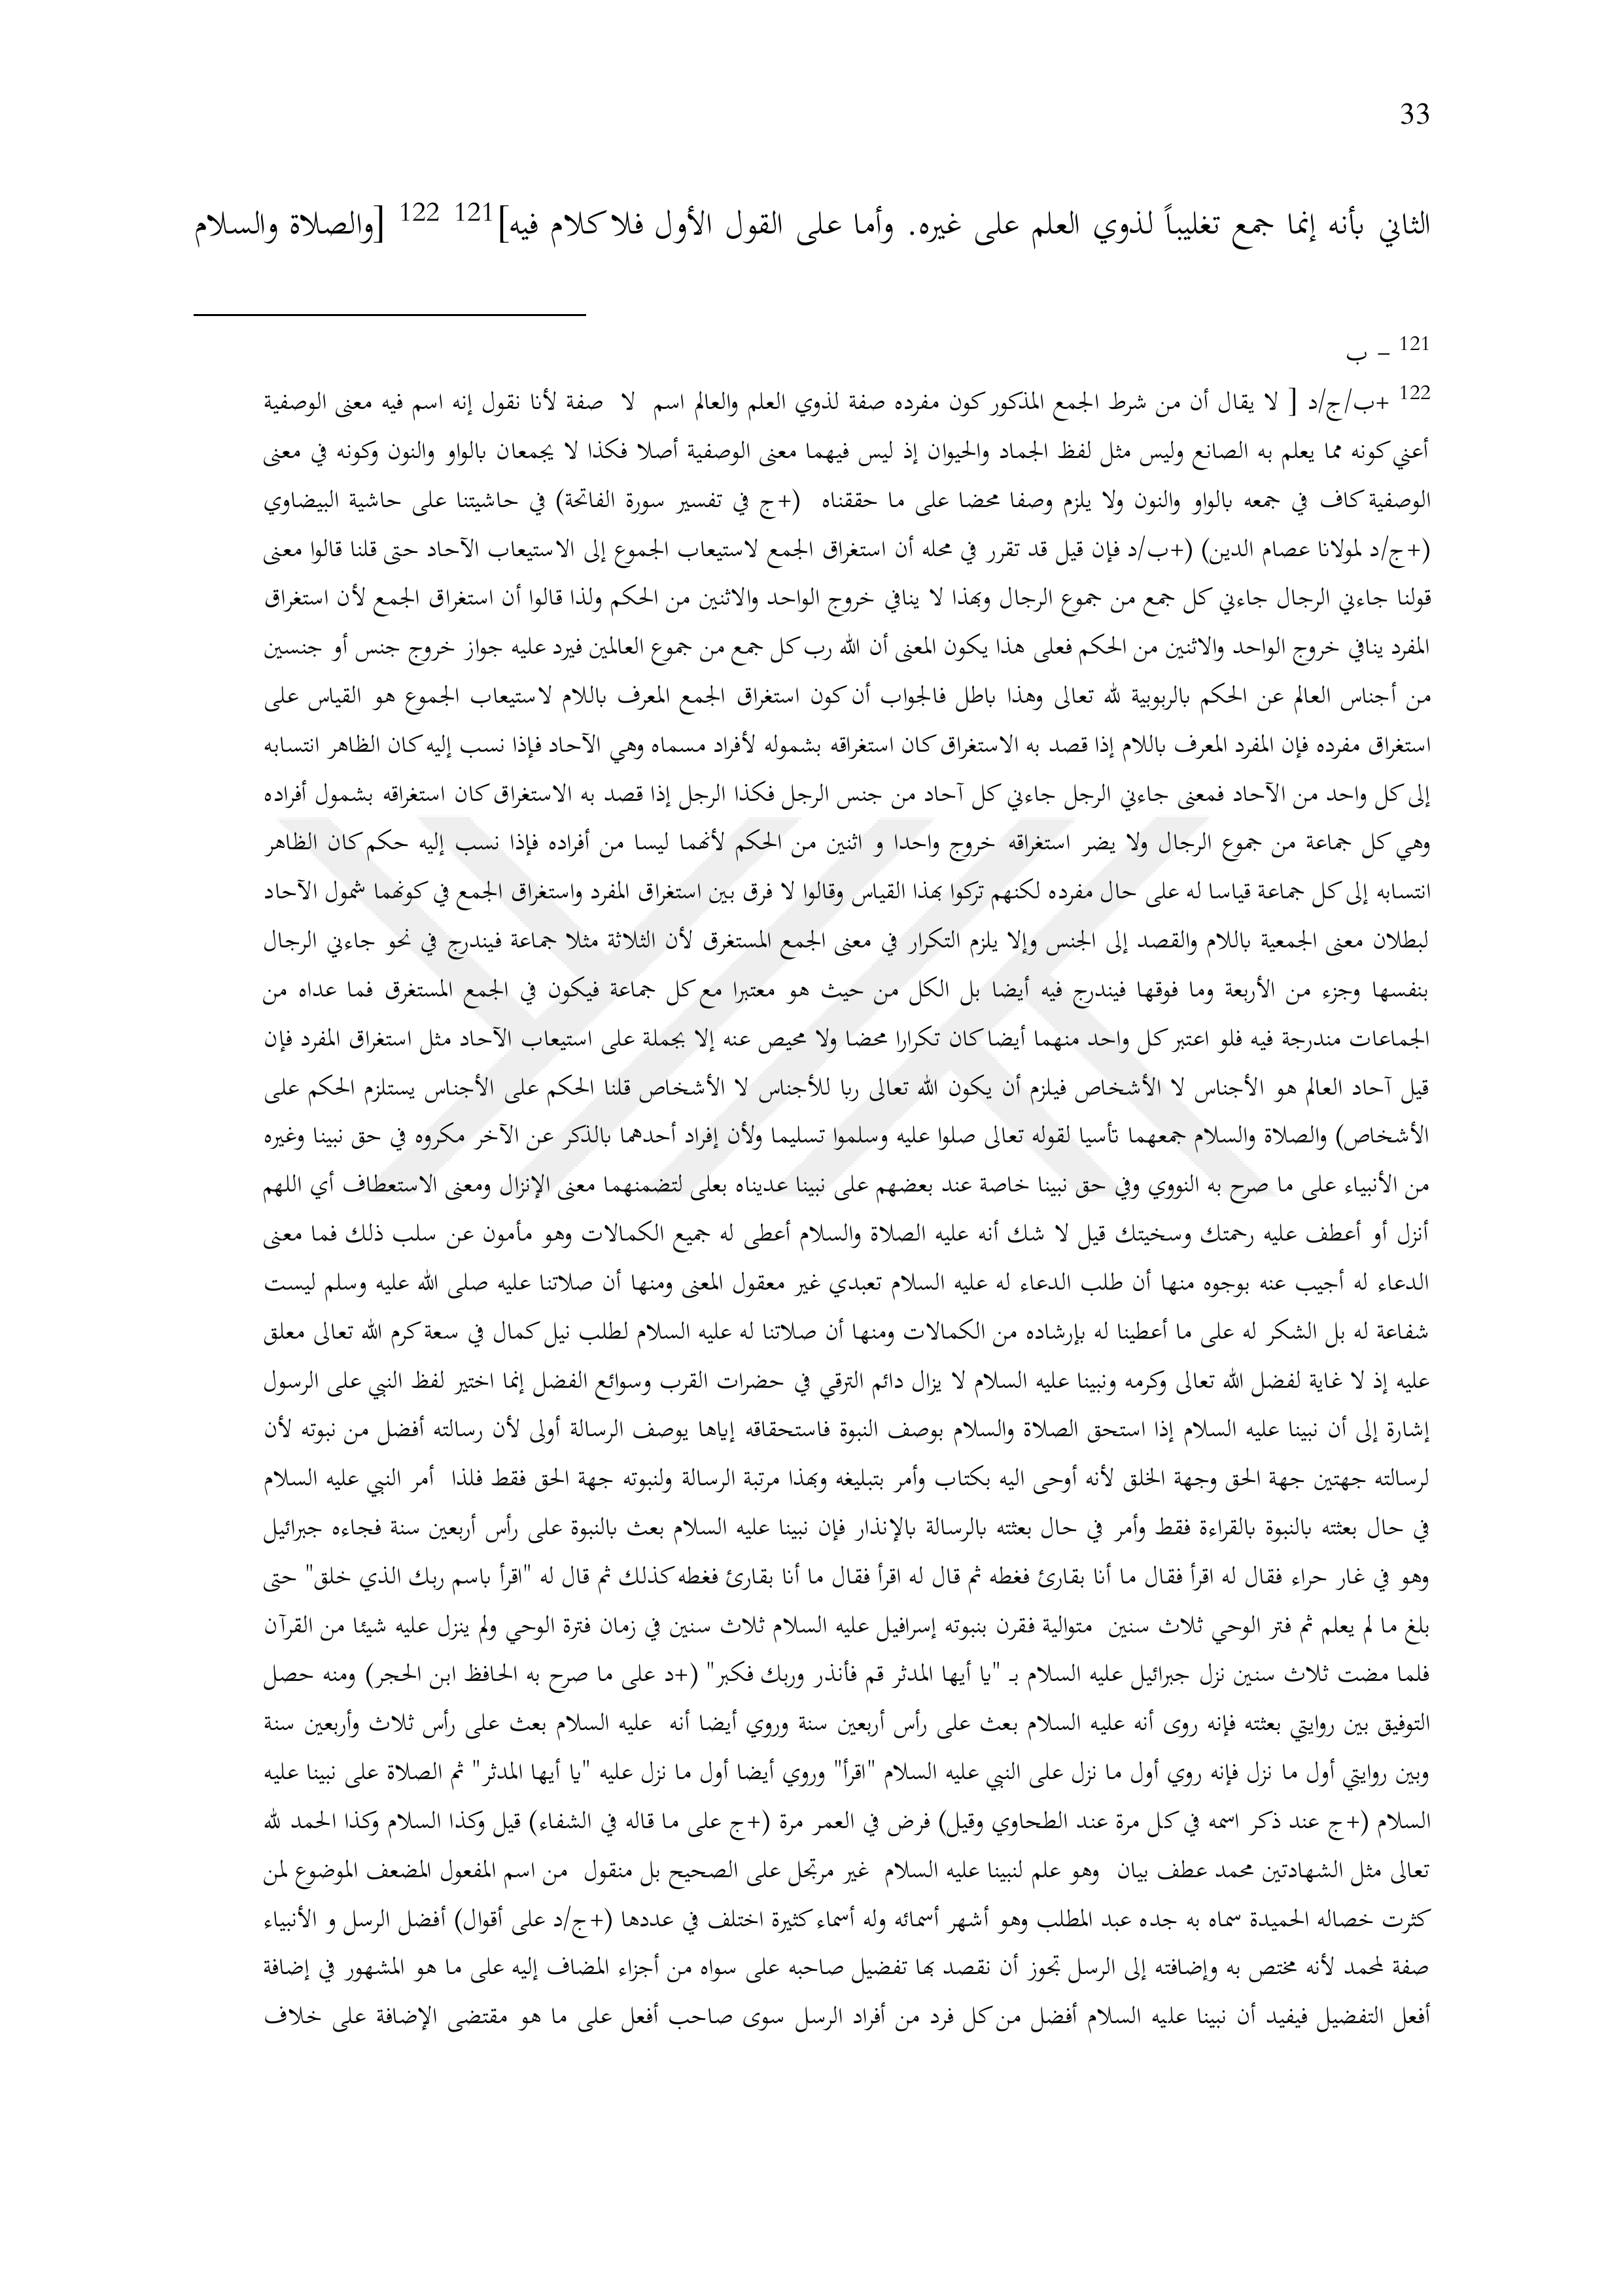 33
الثاني بأنه إنما جمع تغليباً لذوي العلم على غيره. وأما على القول الأول فلا كلام فيه]121 122 [والصلاة والسلام
121 – ب
122 +ب/ج/د [ لا يقال أن من شرط الجمع المذكور كون مفرده صفة لذوي العلم والعالم اسم لا صفة لأنا نقول إنه اسم فيه معنى الوصفية
أعني كونه مما يعلم به الصانع وليس مثل لفظ الجماد والحيوان إذ ليس فيهما معنى الوصفية أصلا فكذا لا يجمعان بالواو والنون وكونه في معنى
الوصفية كاف في جمعه بالواو والنون ولا يلزم وصفا محضا على ما حققناه (+ج في تفسير سورة الفاتحة) في حاشيتنا على حاشية البيضاوي
(+ج/د لمولانا عصام الدين) (+ب/د فإن قيل قد تقرر في محله أن استغراق الجمع لاستيعاب الجموع إلى الاستيعاب الآحاد حتى قلنا قالوا معنى
قولنا جاءني الرجال جاءني كل جمع من جموع الرجال وبهذا لا ينافي خروج الواحد والاثنين من الحكم ولذا قالوا أن استغراق الجمع لأن استغراق
المفرد ينافي خروج الواحد والاثنين من الحكم فعلى هذا يكون المعنى أن الله رب كل جمع من جموع العالمين فيرد عليه جواز خروج جنس أو جنسين
من أجناس العالم عن الحكم بالربوبية لله تعالى وهذا باطل فالجواب أن كون استغراق الجمع المعرف باللام لاستيعاب الجموع هو القياس على
استغراق مفرده فإن المفرد المعرف باللام إذا قصد به الاستغراق كان استغراقه بشموله لأفراد مسماه وهي الآحاد فإذا نسب إليه كان الظاهر انتسابه
إلى كل واحد من الآحاد فمعنى جاءني الرجل جاءني كل آحاد من جنس الرجل فكذا الرجل إذا قصد به الاستغراق كان استغراقه بشمول أفراده
وهي كل جماعة من جموع الرجال ولا يضر استغراقه خروج واحدا و اثنين من الحكم لأنهما ليسا من أفراده فإذا نسب إليه حكم كان الظاهر
انتسابه إلى كل جماعة قياسا له على حال مفرده لكنهم تركوا بهذا القياس وقالوا لا فرق بين استغراق المفرد واستغراق الجمع في كونهما شمول الآحاد
لبطلان معنى الجمعية باللام والقصد إلى الجنس وإلا يلزم التكرار في معنى الجمع المستغرق لأن الثلاثة مثلا جماعة فيندرج في نحو جاءني الرجال
بنفسها وجزء من الأربعة وما فوقها فيندرج فيه أيضا بل الكل من حيث هو معتبرا مع كل جماعة فيكون في الجمع المستغرق فما عداه من
الجماعات مندرجة فيه فلو اعتبر كل واحد منهما أيضا كان تكرارا محضا ولا محيص عنه إلا بجملة على استيعاب الآحاد مثل استغراق المفرد فإن
قيل آحاد العالم هو الأجناس لا الأشخاص فيلزم أن يكون الله تعالى ربا للأجناس لا الأشخاص قلنا الحكم على الأجناس يستلزم الحكم على
الأشخاص) والصلاة والسلام جمعهما تأسيا لقوله تعالى صلوا عليه وسلموا تسليما ولأن إفراد أحدهما بالذكر عن الآخر مكروه في حق نبينا وغيره
من الأنبياء على ما صرح به النووي وفي حق نبينا خاصة عند بعضهم على نبينا عديناه بعلى لتضمنهما معنى الإنزال ومعنى الاستعطاف أي اللهم
أنزل أو أعطف عليه رحمتك وسخيتك قيل لا شك أنه عليه الصلاة والسلام أعطى له جميع الكمالات وهو مأمون عن سلب ذلك فما معنى
الدعاء له أجيب عنه بوجوه منها أن طلب الدعاء له عليه السلام تعبدي غير معقول المعنى ومنها أن صلاتنا عليه صلى الله عليه وسلم ليست
شفاعة له بل الشكر له على ما أعطينا له بإرشاده من الكمالات ومنها أن صلاتنا له عليه السلام لطلب نيل كمال في سعة كرم الله تعالى معلق
عليه إذ لا غاية لفضل الله تعالى وكرمه ونبينا عليه السلام لا يزال دائم الترقي في حضرات القرب وسوائع الفضل إنما اختير لفظ النبي على الرسول
إشارة إلى أن نبينا عليه السلام إذا استحق الصلاة والسلام بوصف النبوة فاستحقاقه إياها يوصف الرسالة أولى لأن رسالته أفضل من نبوته لأن
لرسالته جهتين جهة الحق وجهة الخلق لأنه أوحى اليه بكتاب وأمر بتبليغه وبهذا مرتبة الرسالة ولنبوته جهة الحق فقط فلذا أمر النبي عليه السلام
في حال بعثته بالنبوة بالقراءة فقط وأمر في حال بعثته بالرسالة بالإنذار فإن نبينا عليه السلام بعث بالنبوة على رأس أربعين سنة فجاءه جبرائيل
وهو في غار حراء فقال له اقرأ فقال ما أنا بقارئ فغطه ثم قال له اقرأ فقال ما أنا بقارئ فغطه كذلك ثم قال له "اقرأ باسم ربك الذي خلق" حتى
بلغ ما لم يعلم ثم فتر الوحي ثلاث سنين متوالية فقرن بنبوته إسرافيل عليه السلام ثلاث سنين في زمان فترة الوحي ولم ينزل عليه شيئا من القرآن
فلما مضت ثلاث سنين نزل جبرائيل عليه السلام بـ "يا أيها المدثر قم فأنذر وربك فكبر" (+د على ما صرح به الحافظ ابن الحجر) ومنه حصل
التوفيق بين روايتي بعثته فإنه روى أنه عليه السلام بعث على رأس أربعين سنة وروي أيضا أنه عليه السلام بعث على رأس ثلاث وأربعين سنة
وبين روايتي أول ما نزل فإنه روي أول ما نزل على النبي عليه السلام "اقرأ" وروي أيضا أول ما نزل عليه "يا أيها المدثر" ثم الصلاة على نبينا عليه
السلام (+ج عند ذكر اسمه في كل مرة عند الطحاوي وقيل) فرض في العمر مرة (+ج على ما قاله في الشفاء) قيل وكذا السلام وكذا الحمد لله
تعالى مثل الشهادتين محمد عطف بيان وهو علم لنبينا عليه السلام غير مرتجل على الصحيح بل منقول من اسم المفعول المضعف الموضوع لمن
كثرت خصاله الحميدة سماه به جده عبد المطلب وهو أشهر أسمائه وله أسماء كثيرة اختلف في عددها (+ج/د على أقوال) أفضل الرسل و الأنبياء
صفة لمحمد لأنه مختص به وإضافته إلى الرسل تجوز أن نقصد بها تفضيل صاحبه على سواه من أجزاء المضاف إليه على ما هو المشهور في إضافة
أفعل التفضيل فيفيد أن نبينا عليه السلام أفضل من كل فرد من أفراد الرسل سوى صاحب أفعل على ما هو مقتضى الإضافة على خلاف